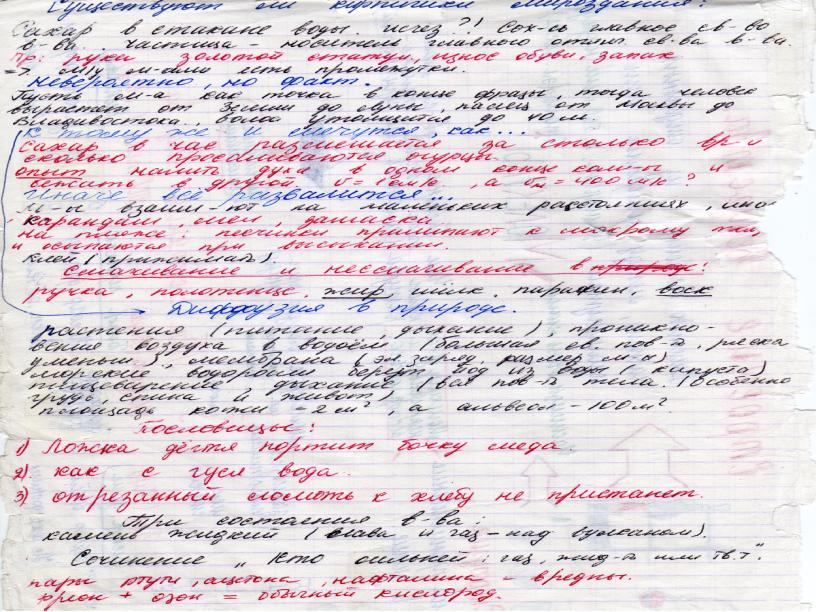 Существуют ли кирпичики мироздания?
Сахар в стакане воды исчез?! Сох-сь главное св-во
в-ва. Частица – носитель главного отлич. св-ва в-ва.
Пр: руки золотой статуи, износ обуви, запах
=> м/у м-лами есть промежутки.
Невероятно, но факт.
Пусть м-а как точка в конце фразы, тогда человек
вырастет от Земли до Луны, палец от Москвы до
Владивостока, волос утолщится до 40 м.
К тому же и мечутся, как...
Сахар в чае размешается за столько вр-и
сколько просаливаются огурцы.
опыт налить духи в одном конце комн-ы и
бежать в другой
Иначе всё развалится...
М-ы взаим-ют на маленьких расстояниях, или
карандаш, мел
на пляже: песчинки прилипают к мокрому телу,
и осыпаются при высыхании.
клей (прижимать).
Смачивание и несмачивание в природе:
ручка, полотенце, жир, шёлк, парафин, воск
Диффузия в природе.
растения (питание, дыхание), проникно-
вение воздуха в водоём (большая св. пов-ть, ряска
уменьш), мембрана (эл. заряд, размер м-л)
морские водоросли берут йод из воды (капуста)
пищеварение, дыхание (вся пов-ть тела. (особенно
грудь, спина и живот)
площадь кожи – 2 м², а альвеол – 100 м².
Пословицы:
1) Ложка дёгтя портит бочку меда.
2) как с гуся вода.
3) отрезанный ломоть к хлебу не пристанет.
Три состояния в-ва:
камень жидкий (лава и газ – над вулканом).
Сочинение „Кто сильней: газ, жид-ть или тв.т."
пары ртути, ацетона, нафталина – вредны.
фреон + озон = обычный кислород.